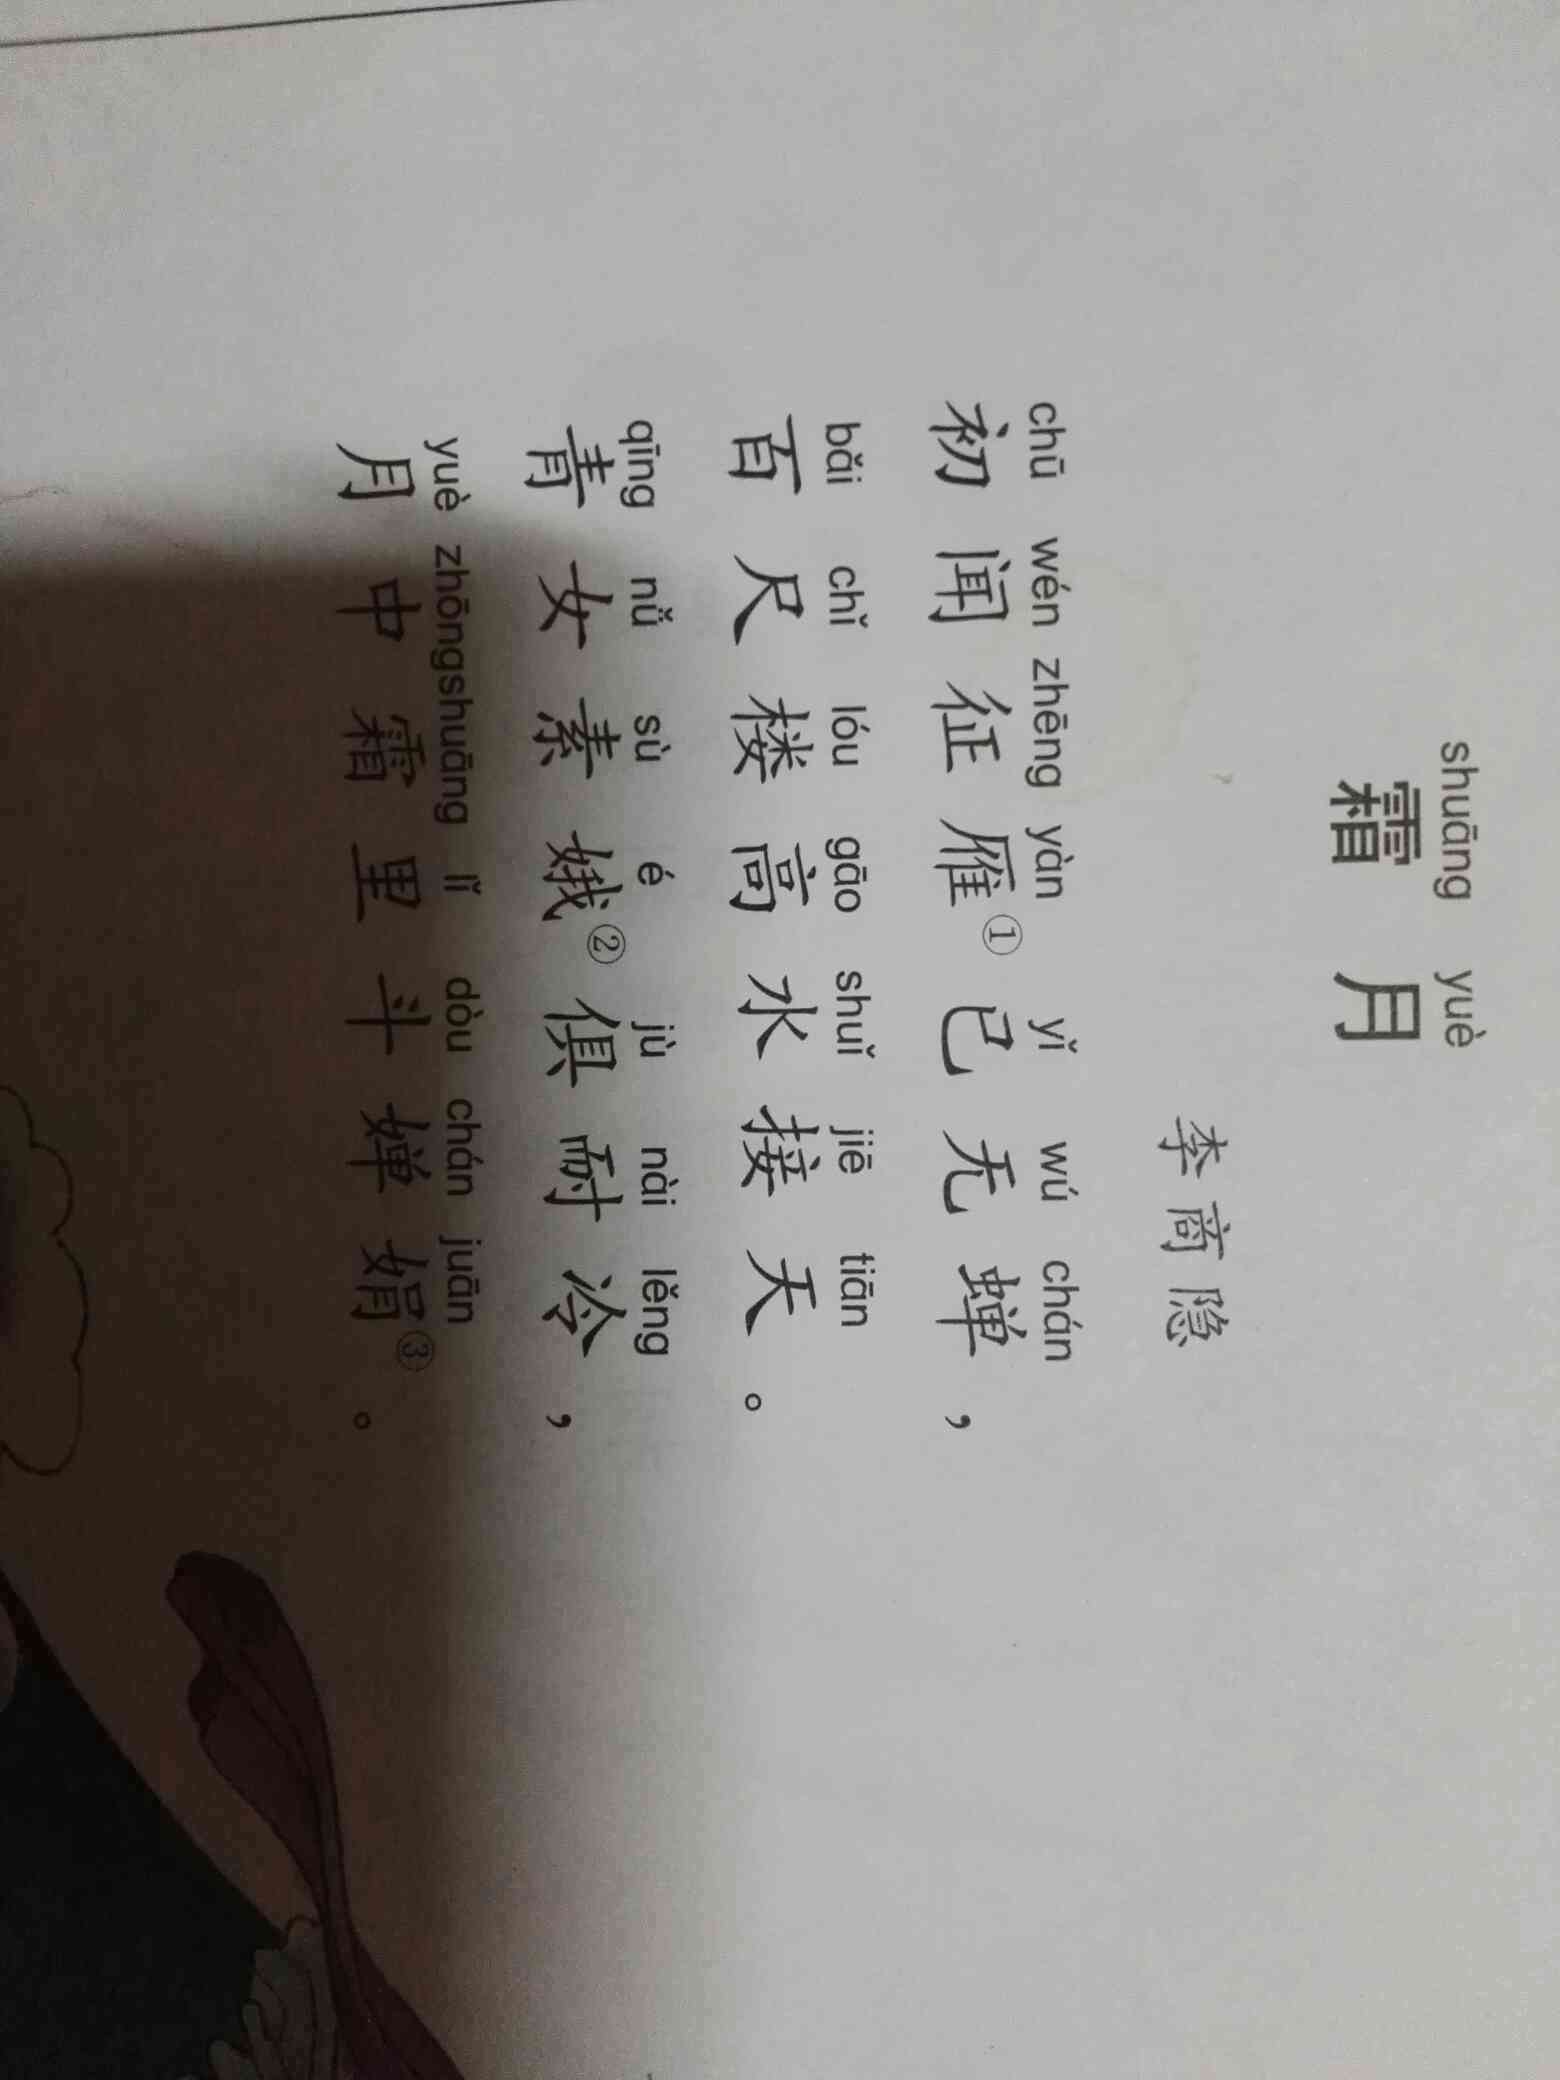 shuāng yuè
霜 月
李商隐
chū wén zhēng yàn yǐ wú chán
初闻征雁①已无蝉，
bǎi chǐ lóu gāo shuǐ jiē tiān
百尺楼高水接天。
qīng nǚ sù é jù nài lěng
青女素娥②俱耐冷，
yuè zhōngshuāng lǐ dòu chán juān
月中霜里斗婵娟③。